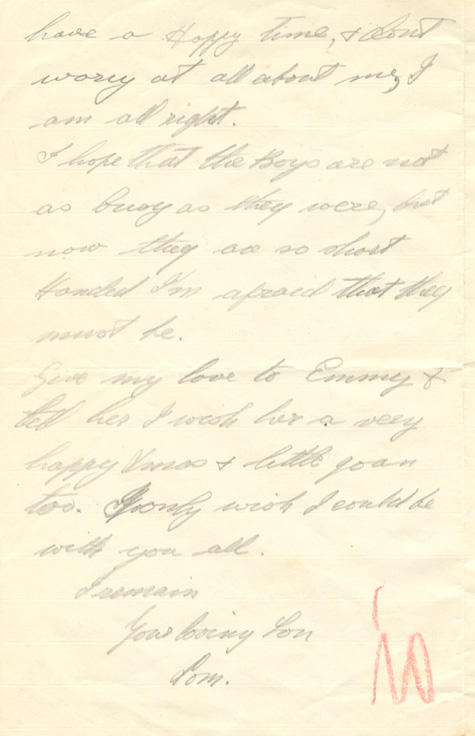 have a Happy time, & dont
worry at all about me, I
am all right.
I hope that the Boys are not
as busy as they were, but
now they are so short
Handed I'm afraid that they
must be.
Give my love to Emmy &
tell her I wish her a very
happy Xmas & little Joan
too. I only wish I could be
with you all.
I remain
Your loving Son
Tom.